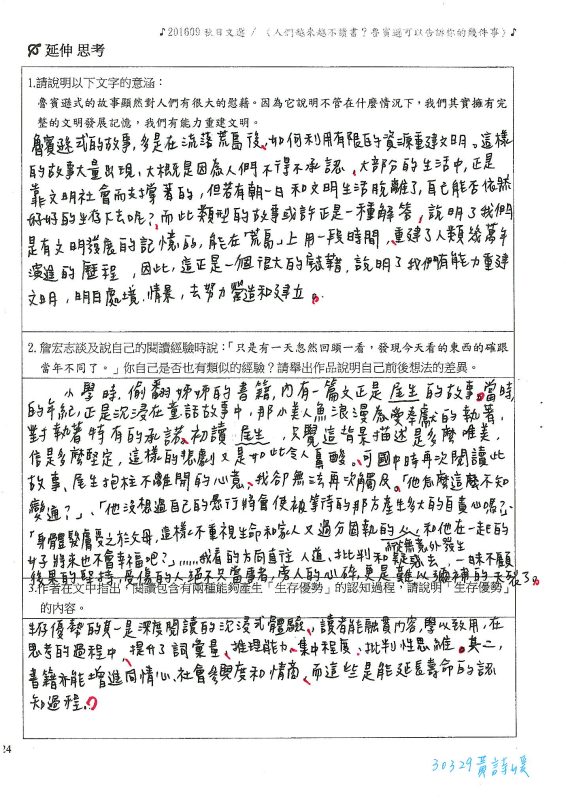 ♪201609 秋日文選 / 〈人們越來越不讀書？魯賓遜可以告訴你的幾件事〉♪
延伸 思考
1.請說明以下文字的意涵：
魯賓遜式的故事顯然對人們有很大的慰藉。因為它說明不管在什麼情況下，我們其實擁有完
整的文明發展記憶，我們有能力重建文明。
魯賓遜式的故事，多是在流落荒島後、如何利用有限的資源重建文明。這樣
的故事大量出現，大概是因為人們不得不承認、大部分的生活中，正是
靠文明社會而支撐著的，但若有朝一日和文明生活脫離了，自己能否依然
好好的生存下去呢？而此類型的故事或許正是一種解答，說明了我們
是有文明發展的記憶的，能在「荒島」上用一段時間、重建了人類幾萬年
演進的歷程，因此，這正是一個很大的慰藉，說明了我們有能力重建
文明，明白處境、情景，去努力營造和建立。
2. 詹宏志談及說自己的閱讀經驗時說：「只是有一天忽然回頭一看，發現今天看的東西的確跟
當年不同了。」你自己是否也有類似的經驗？請舉出作品說明自己前後想法的差異。
小學時，偷翻姊姊的書籍，內有一篇文正是尾生的故事。當時
的年紀，正是沉浸在童話故事中，那小美人魚浪漫為愛奉獻的執著，
對執著特有的承諾、初讀尾生，只覺這背景描述是多麼唯美，
信是多麼堅定，這樣的悲劇又是如此令人鼻酸。可國中時再次閱讀此
故事、尾生抱柱不離開的心意、我卻無法再次觸及。「他怎麼這麼不知
變通？」、「他沒想過自己的愚行將會使被等待的那方產生多大的自責心嗎？」、
「身體髮膚受之於父母，這樣不重視生命和家人又過分固執的人、和他在一起的
女子將來也不會幸福吧？」……我看的方向直往人道、批判和疑惑去，一昧不顧
縱無意外發生
後果的堅持，受傷的人絕不只當事者，旁人的心碎，更是難以彌補的天
3.作者在文中指出「閱讀包含有兩種能夠產生「生存優勢」的認知過程，請說明「生存優勢」
的內容。
生存優勢的其一是深度閱讀的沉浸式體驗，讀者能融貫內容，學以致用，在
思考的過程中、提升了詞彙量、推理能力、集中程度、批判性思維。其二，
書籍亦能增進同情心、社會參與度和情商、而這些是能延長壽命的認
知過程。
24
30329 黃詩媛